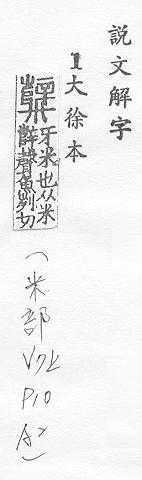 說文解字
1大徐本
糱牙米也从米
辥聲魚列切
（米部V7上
P10